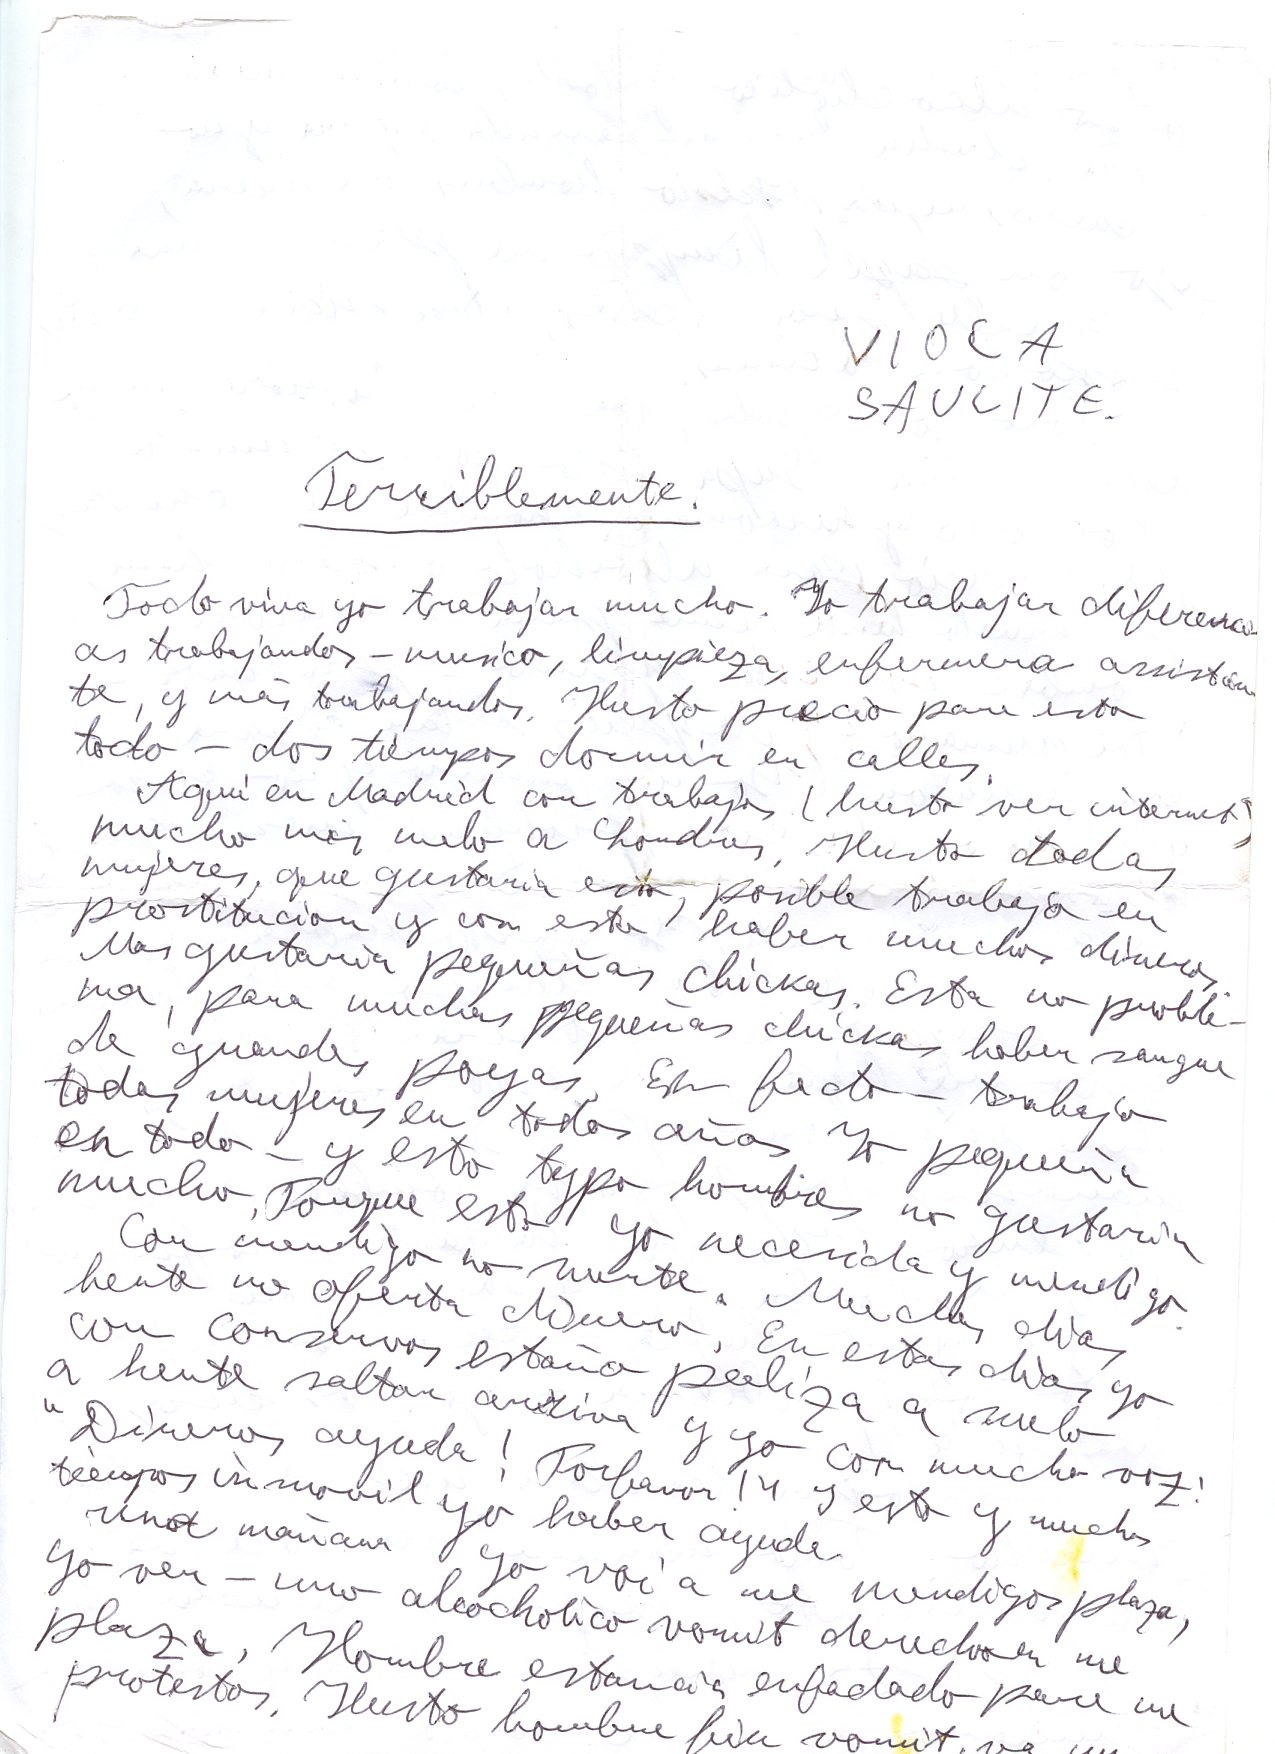 VIOLA
SAULITE.
Terriblemente.
Todo viva yo trabajar mucho. Yo trabajar diferenci-
as trabajandos – musico, limpieza, enfermera assistan-
te, y más trabajandos. Husto precio para esta
todo – dos tiempos dormir en calles.
Aqui en Madrid con trabajos (husto ver internet)
mucho más malo a Londres. Husto todas
mujeres, que gustaria esto, posible trabajo en
prostitucion y con esto haber muchos dineros.
Mas gustaria pequeñas chickas. Esta no proble-
ma, para muchas pequeñas chickas haber sangue
de grandes poyas. En facto – trabajo
todas mujeres en todos años. Yo pequeña
en todo – y esto typo hombres no gustaria
mucho. Porque esto yo necesida y mendigo.
Con mendigo no suerte. Muchas dias
hente no oferta dinero. En estas dias yo
con conservos estaño realiza a suelo
a hente saltar arriva y yo con mucha voz:
"Dineros ayuda! Porfavor!" y esto y muchos
tiempos inmovil yo haber ayuda.
Unot mañana yo voi a me mendigos plaza,
yo ver – uno alcocholico vomit derecho en me
plaza. Hombre estancia enfadado para me
protestos. Husto hombre fin vomit, va